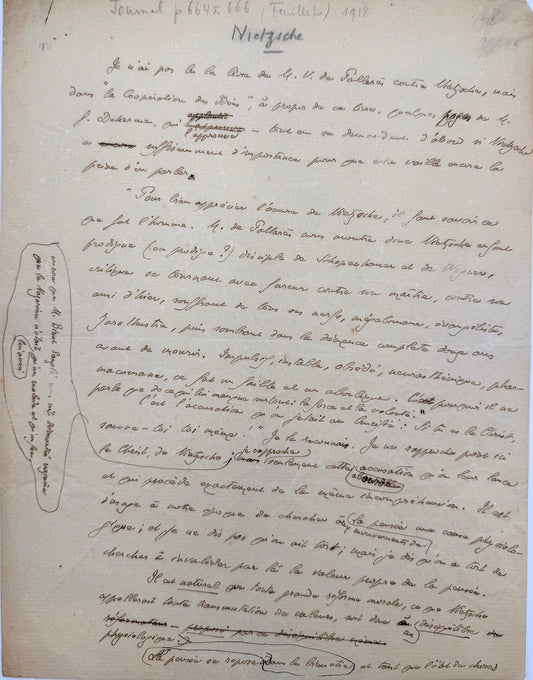 Journal p 664 à 666 (Feuillets) 1918
Nietzsche
Je n'ai pas lu le livre de M. V. de Pallarès contre Nietzsche, mais
dans "la Coopération des Idées", à propos de ce livre, quelques pages de M.
G. Deherme, qui applaudit
l'approuve
l'approuve – tout en se demandant d'abord si Nietzsche
a encore suffisamment d'importance pour que cela vaille encore la
peine d'en parler.
"Pour bien apprécier l'œuvre de Nietzsche, il faut savoir ce
que fut l'homme. M. de Pallarès nous montre donc Nietzsche enfant
prodigue (ou prodige ?) disciple de Schopenhauer et de Wagner,
critique se tournant avec fureur contre son maître, contre son
ami d'hier, souffrant de tous ses nerfs, mégalomane, évangéliste,
Zarathustra, puis sombrant dans la démence complète douze ans
avant de mourir. Impulsif, instable, obsédé, neurasthénique, phar-
macomane, ce fut un faible et un aboulique. C'est pourquoi il ne
parle que de ce qui lui manque surtout : la force et la volonté."
C'est l'accusation qu'on jetait au Crucifié : Si tu es le Christ,
sauve-toi toi même ! Je la reconnais. Je ne rapproche point ici
le Christ, de Nietzsche ; je rapproche
mais seulement cette accusation qu'on leur lance
et qui procède exactement de la même incompréhension. Il est
d'usage à notre époque de chercher aux mouvements de la pensée une cause physiolo-
gique ; et je ne dis pas qu'on ait tort ; mais je dis qu'on a tort de
chercher à invalider par là la valeur propre de la pensée.
Il est naturel que toute grande réforme morale, ce que Nietzsche
appellerait toute transmutation de valeurs, soit due à un déséquilibre
physiologique.
la pensée se repose
dans le bien-être et tant que l'état de choses
encore que M. Binet-Sanglé
que le Nazaréen n'était qu'un malade et qu'un fou